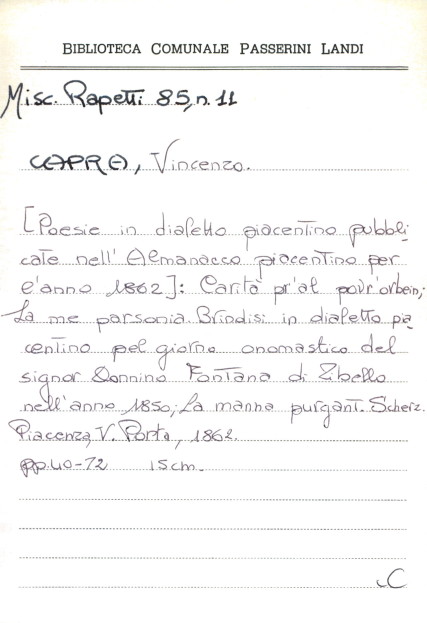 BIBLIOTECA COMUNALE PASSERINI LANDI
Misc. Rapetti 85, n. 11
CAPRA, Vincenzo.
[Poesie in dialetto piacentino pubbli
cate nell' Almanacco piacentino per
l'anno 1862]: Carità pr'al povr'orbein;
La me parsonia. Brindisi in dialetto pia
centino pel giorno onomastico del
signor Donnino Fontana di Zibello
nell'anno 1850; La manna purgant. Scherz.
Piacenza, V. Porta, 1862.
pp. 40-72 15 cm.